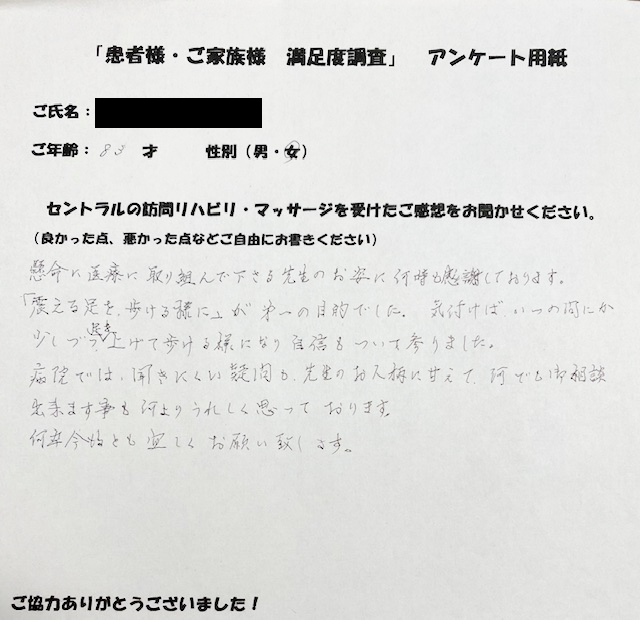 「患者様・ご家族様 満足度調査」 アンケート用紙
ご氏名：
ご年齢： 83 才 性別（男・女）
セントラルの訪問リハビリ・マッサージを受けたご感想をお聞かせください。
（良かった点、悪かった点などご自由にお書きください）
懸命に医療に取り組んで下さる先生のお姿に何時も感謝しております。
「震える足を、歩ける様に」が第一の目的でした。 気付けば、いつの間にか
少しづつ、足を上げて歩ける様になり自信もついて参りました。
病院では、聞きにくい疑問も、先生のお人柄に甘えて、何でも御相談
出来ます事も何よりうれしく思って おります。
何卒今後とも宜しく お願い致します。
ご協力ありがとうございました！